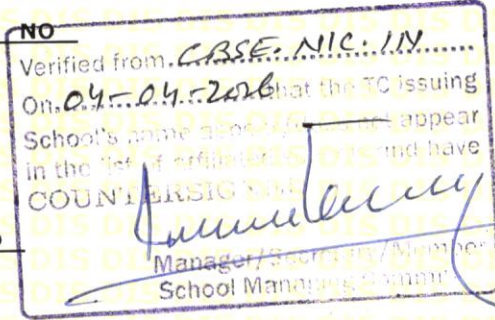 NO
Verified from CBSE.NIC.IN
On 04-04-2026 that the TC issuing
School's name appear
in the list of and have
COUNTERSIG
Manager/Secretary/Member
School
DIS DIS DIS DIS